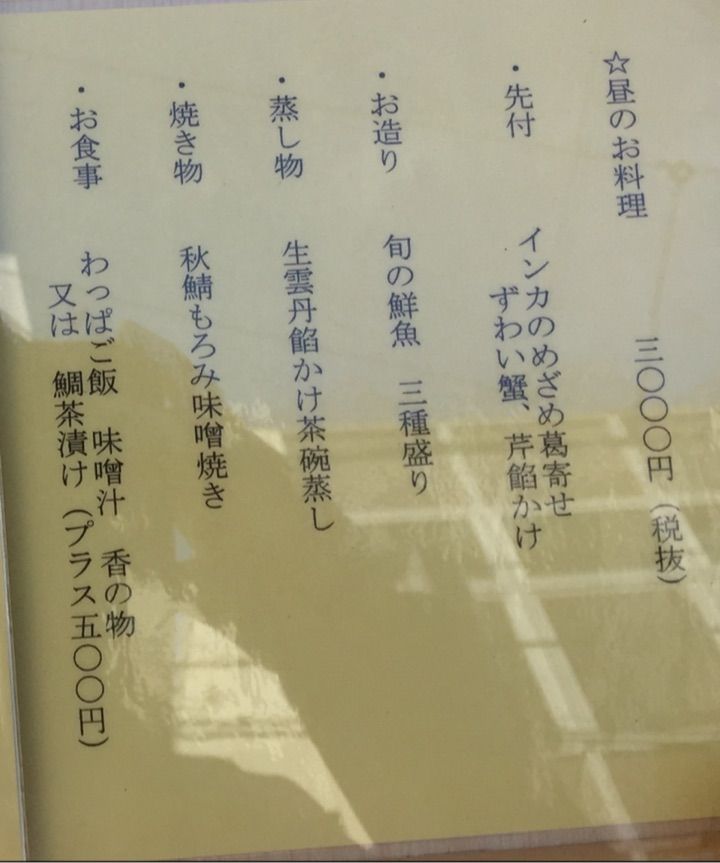 ☆昼のお料理　三〇〇〇円（税抜）
・先付　インカのめざめ葛寄せ
ずわい蟹、芹餡かけ
・お造り　旬の鮮魚　三種盛り
・蒸し物　生雲丹餡かけ茶碗蒸し
・焼き物　秋鯖もろみ味噌焼き
・お食事　わっぱご飯　味噌汁　香の物
又は　鯛茶漬け（プラス五〇〇円）